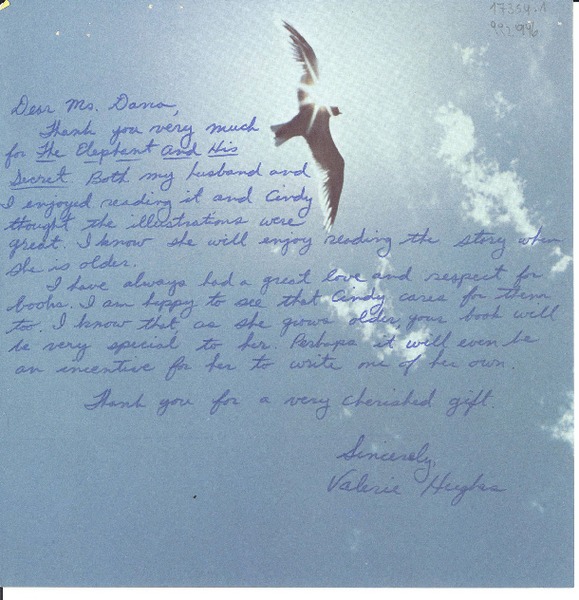 17354.1
992.996
Dear Ms. Dana,
Thank you very much
for The Elephant and His
Secret. Both my husband and
I enjoyed reading it and Cindy
thought the illustrations were
great. I know she will enjoy reading the story when
she is older.
I have always had a great love and respect for
books. I am happy to see that Cindy cares for them
to. I know that, as she grows older, your book will
be very special to her. Perhaps it will even be
an incentive for her to write one of her own.
Thank you for a very cherished gift.
Sincerely,
Valerie Hughes